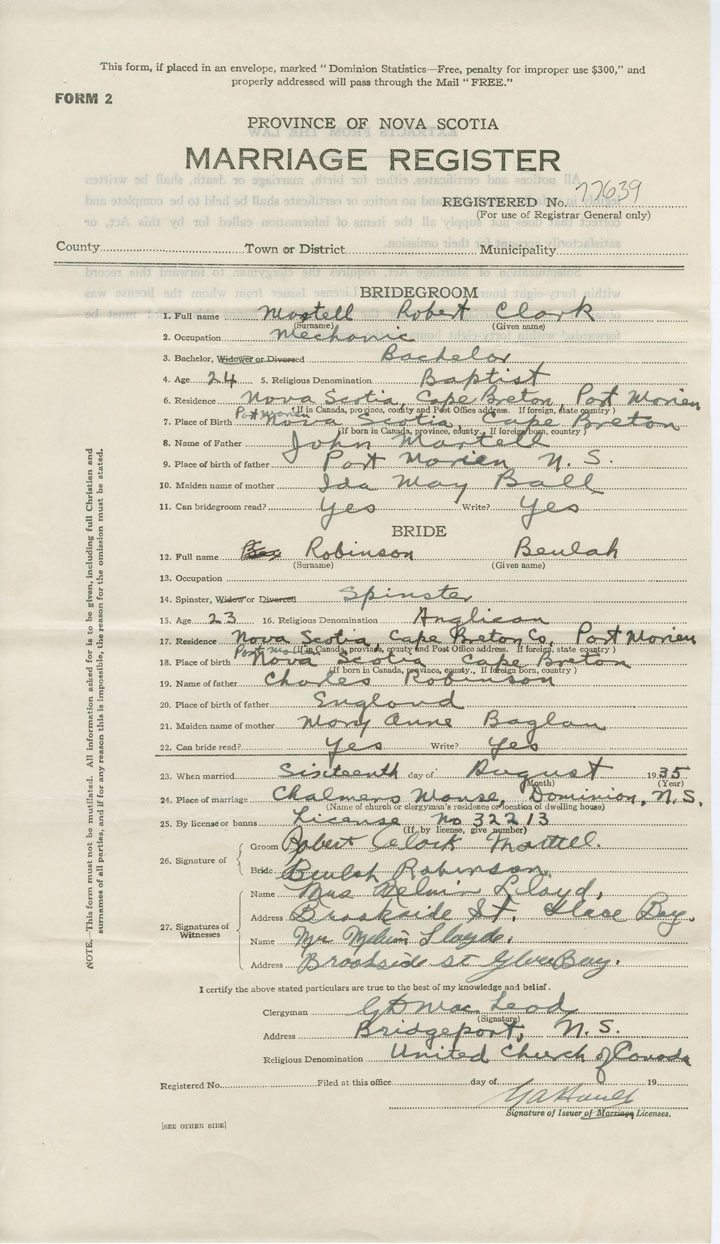 This form, if placed in an envelope, marked "Dominion Statistics—Free, penalty for improper use $300," and
properly addressed will pass through the Mail "FREE."
FORM 2
PROVINCE OF NOVA SCOTIA
MARRIAGE REGISTER
REGISTERED No. 77639
(For use of Registrar General only)
County Town or District Municipality
BRIDEGROOM
1. Full name Martell Robert Clark
(Surname) (Given name)
2. Occupation Mechanic
3. Bachelor, Widower or Divorced Bachelor
4. Age 24 5. Religious Denomination Baptist
6. Residence Nova Scotia, Cape Breton, Port Morien
(If in Canada, province, county and Post Office address. If foreign, state country)
7. Place of Birth Port Morien Nova Scotia, Cape Breton
(If born in Canada, province, county. If foreign born, country)
8. Name of Father John Martell
9. Place of birth of father Port Morien N. S.
10. Maiden name of mother Ida May Ball
11. Can bridegroom read? Yes Write? Yes
BRIDE
12. Full name Robinson Beulah
(Surname) (Given name)
13. Occupation
14. Spinster, Widow or Divorced Spinster
15. Age 23 16. Religious Denomination Anglican
17. Residence Nova Scotia, Cape Breton Co, Port Morien
(If in Canada, province, county and Post Office address. If foreign, state country)
18. Place of birth Nova Scotia Cape Breton
(If born in Canada, province, county., If foreign born, country)
19. Name of father Charles Robinson
20. Place of birth of father England
21. Maiden name of mother Mary Anne
22. Can bride read? Yes Write? Yes
23. When married Sixteenth day of August 1935
(Month) (Year)
24. Place of marriage Chalmers Manse, Dominion, N. S.
(Name of church or clergyman's residence or location of dwelling house)
25. By license or banns License No 32213
(If by license, give number)
26. Signature of
Groom Robert Clark Martell.
Bride Beulah Robinson.
27. Signatures of Witnesses
Name Mrs Melvin Lloyd,
Address Brookside St. Glace Bay.
Name Mr Melvin Lloyde.
Address Brookside st Glace Bay.
I certify the above stated particulars are true to the best of my knowledge and belief.
Clergyman MacLeod
(Signature)
Address Bridgeport, N. S.
Religious Denomination United Church of Canada
Registered No. Filed at this office day of 19
Signature of Issuer of Marriage Licenses.
[SEE OTHER SIDE]
NOTE.—This form must not be mutilated. All information asked for is to be given, including full Christian and
surnames of all parties, and if for any reason this is impossible, the reason for the omission must be stated.